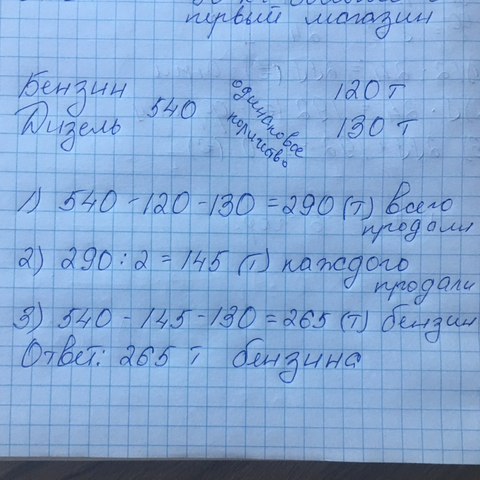 первый магазин
Бензин 540 одинаковое количество 120 т
Дизель 130 т
1) 540 - 120 - 130 = 290 (т) всего
продали
2) 290 : 2 = 145 (т) каждого
продали
3) 540 - 145 - 130 = 265 (т) бензин
Ответ: 265 т бензина